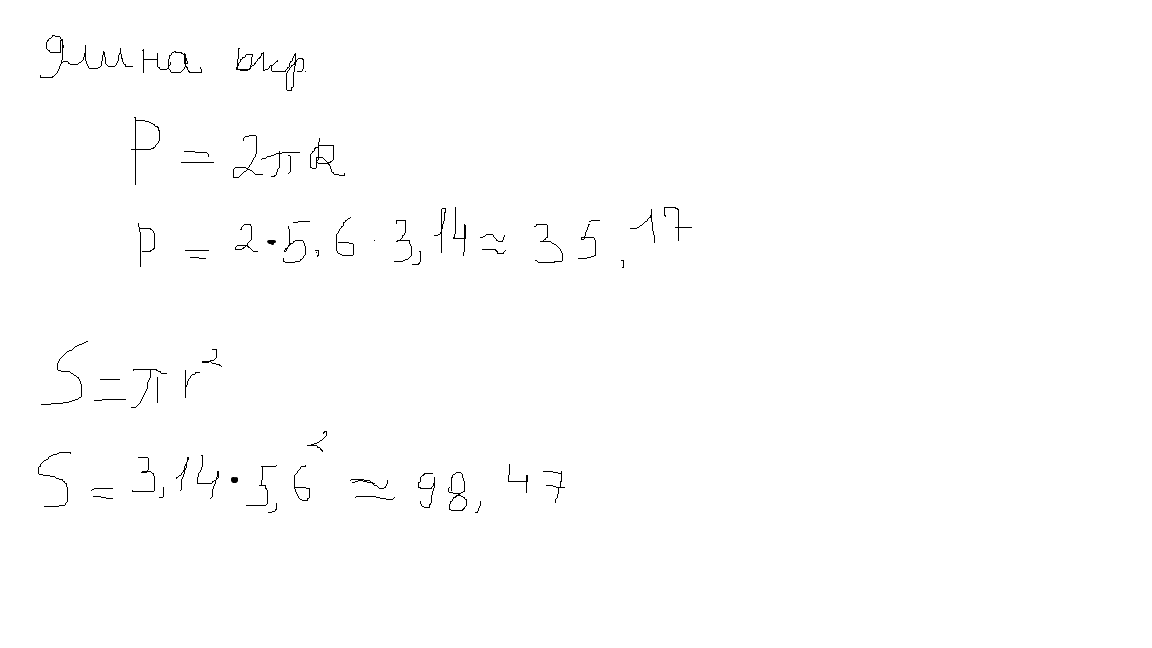 длина окр
P = 2πR
P = 2·5,6·3,14≈35,17
S=πr²
S=3,14·5,6²≈98,47